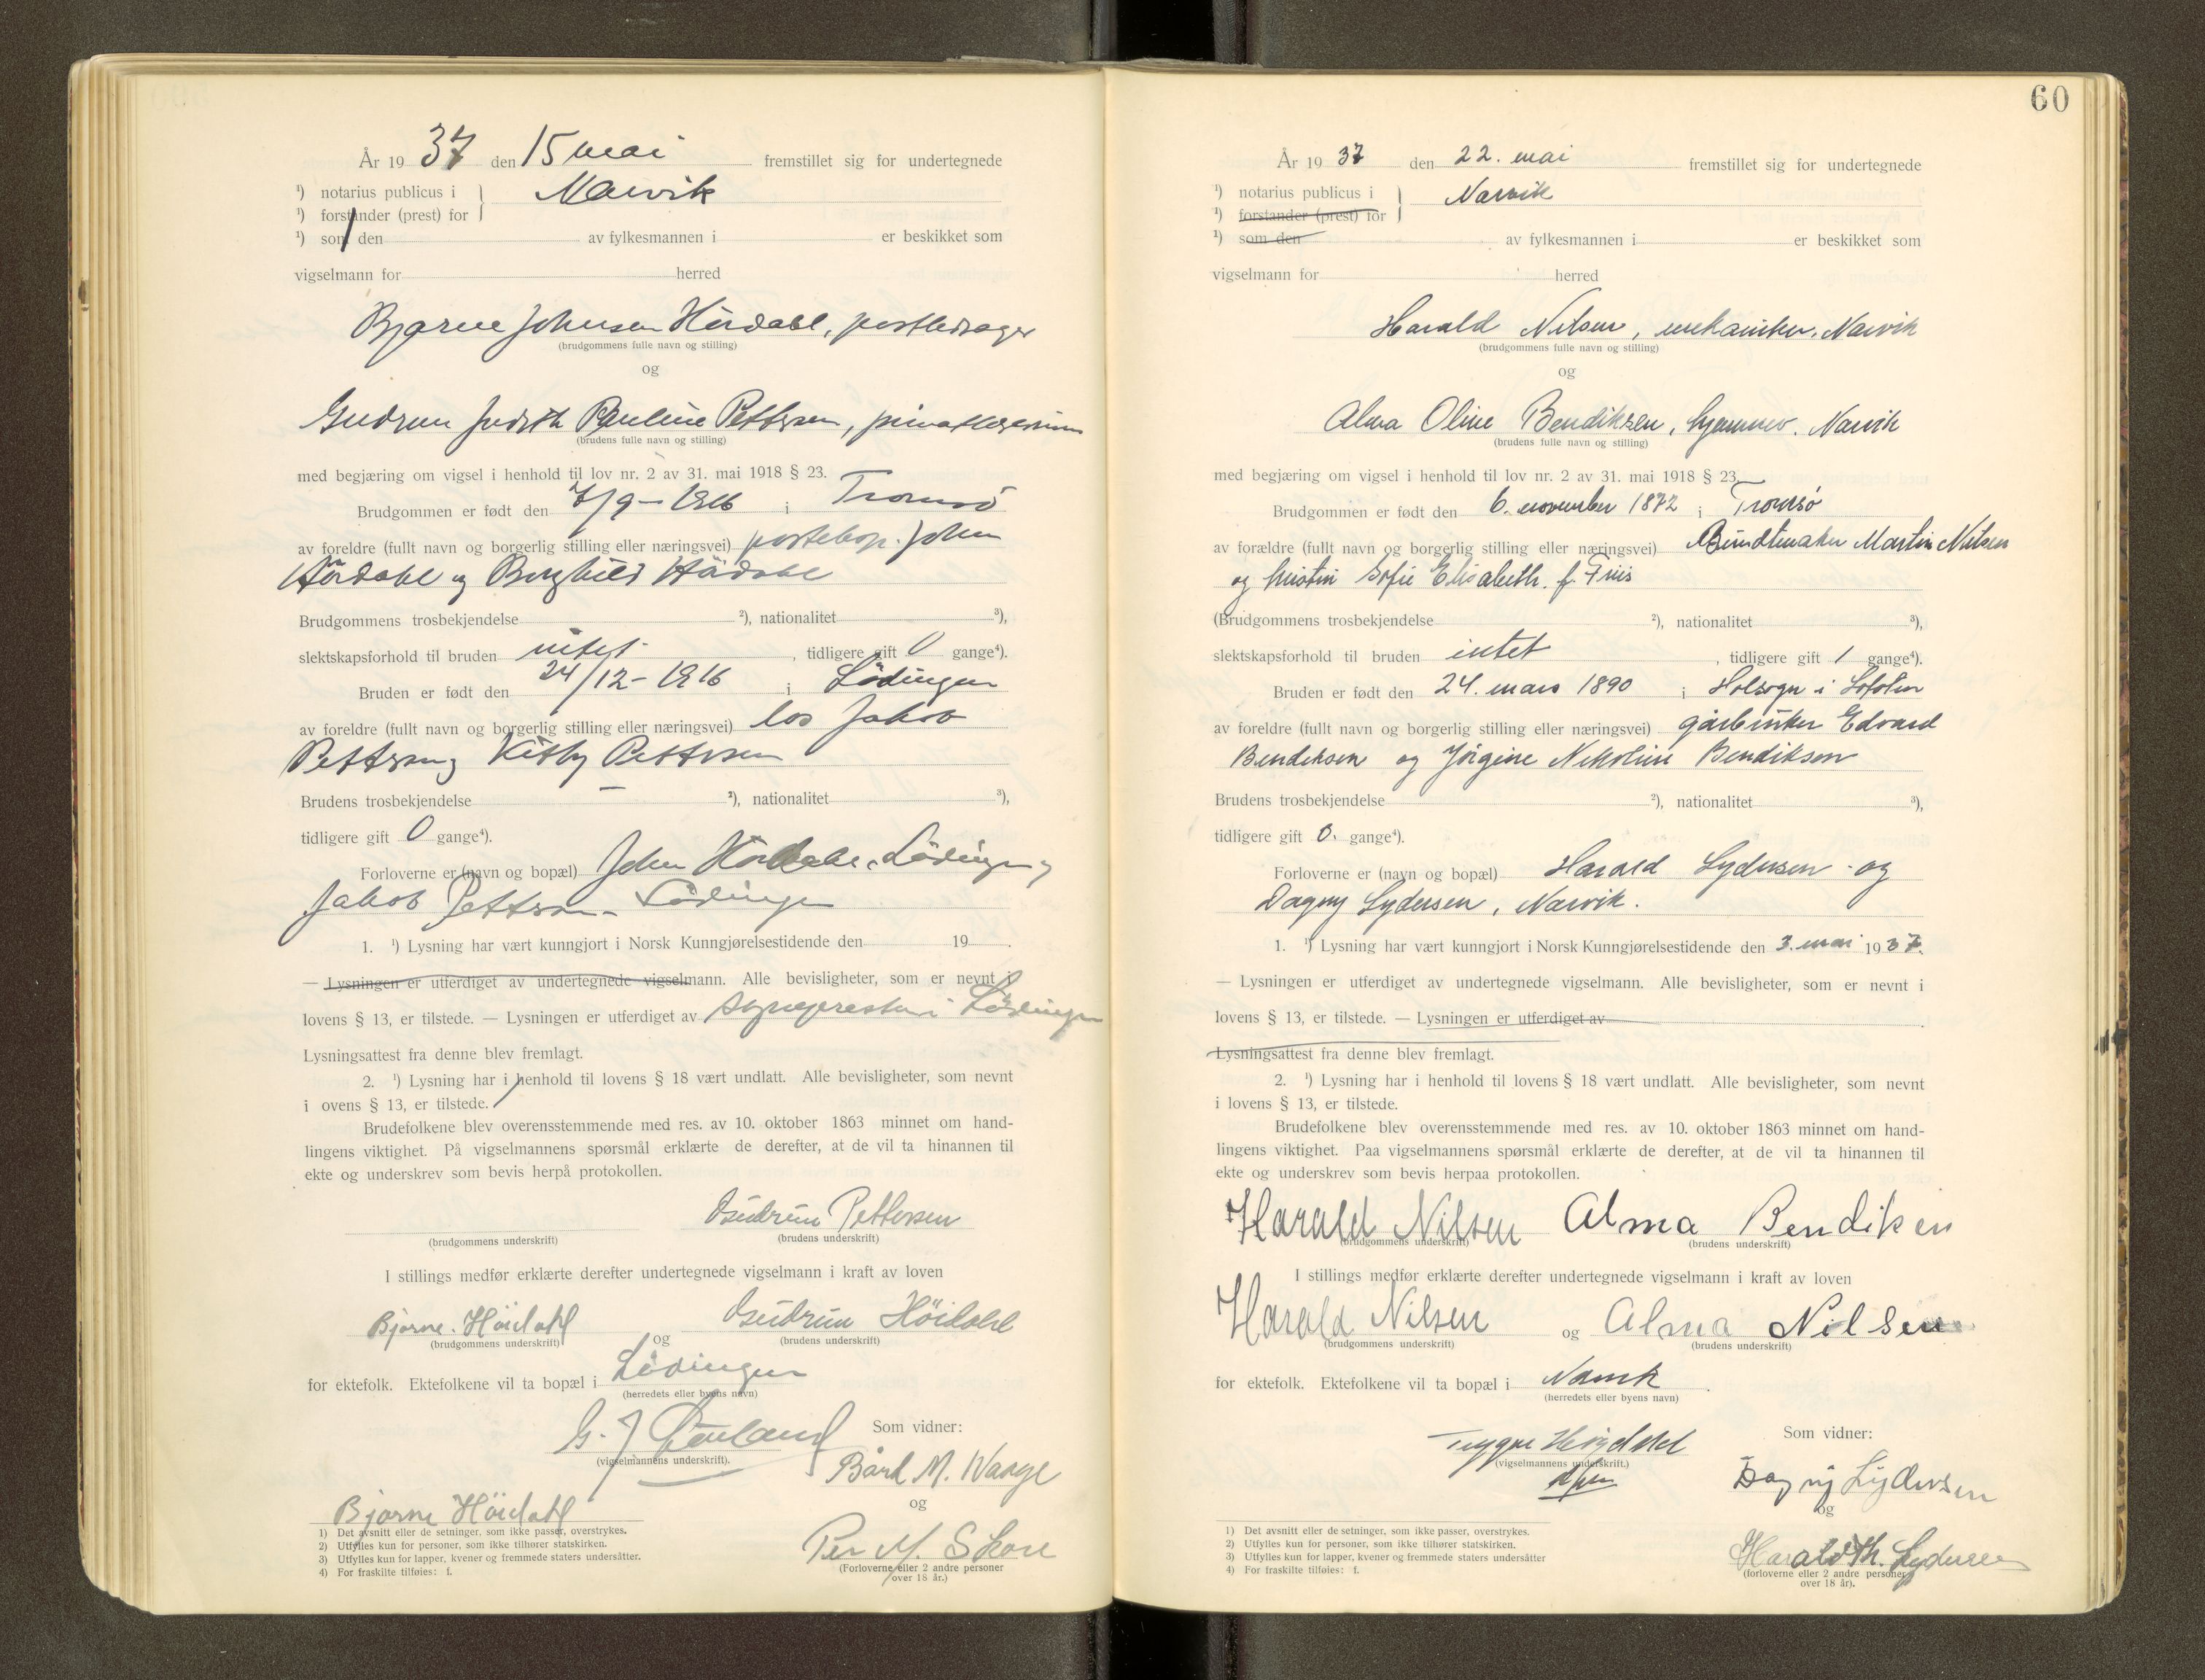 År 19 37 den 15 mai fremstillet sig for undertegnede
¹) notarius publicus i } Narvik
¹) forstander (prest) for
¹) som den av fylkesmannen i er beskikket som
vigselmann for herred
Bjarne Johnsen Höidahl, postbedrager
(brudgommens fulle navn og stilling)
og
Gudrun Judith Pauline Pettersen,
(brudens fulle navn og stilling)
med begjæring om vigsel i henhold til lov nr. 2 av 31. mai 1918 § 23.
Brudgommen er født den 7/9 – 1916 i Tromsö
av foreldre (fullt navn og borgerlig stilling eller næringsvei) John
Höidahl og Borghild Höidahl
Brudgommens trosbekjendelse ²), nationalitet ³),
slektskapsforhold til bruden intet , tidligere gift 0 gange⁴).
Bruden er født den 24/12 – 1916 i Lödingen
av foreldre (fullt navn og borgerlig stilling eller næringsvei) los Jakob
Pettersen og Kitty Pettersen
Brudens trosbekjendelse ²), nationalitet ³),
tidligere gift 0 gange⁴).
Forloverne er (navn og bopæl) John Höidahl, Lödingen og
Jakob Pettersen – Lödingen
1. ¹) Lysning har vært kunngjort i Norsk Kunngjørelsestidende den 19 .
— Lysningen er utferdiget av undertegnede vigselmann. Alle bevisligheter, som er nevnt i
lovens § 13, er tilstede. — Lysningen er utferdiget av sognepresten i Lödingen
Lysningsattest fra denne blev fremlagt.
2. ¹) Lysning har i henhold til lovens § 18 vært undlatt. Alle bevisligheter, som nevnt
i ovens § 13, er tilstede.
Brudefolkene blev overensstemmende med res. av 10. oktober 1863 minnet om hand-
lingens viktighet. På vigselmannens spørsmål erklærte de derefter, at de vil ta hinannen til
ekte og underskrev som bevis herpå protokollen.
Gudrun Pettersen
(brudgommens underskrift) (brudens underskrift)
I stillings medfør erklærte derefter undertegnede vigselmann i kraft av loven
Bjarne Höidahl og Gudrun Höidahl
(brudgommens underskrift) (brudens underskrift)
for ektefolk. Ektefolkene vil ta bopæl i Lödingen
(herredets eller byens navn)
G. J. Som vidner:
(vigselmannens underskrift). Bård M. Waage
og
Bjarne Höidahl
Per M. Skore
(Forloverne eller 2 andre personer
over 18 år.)
1) Det avsnitt eller de setninger, som ikke passer, overstrykes.
2) Utfylles kun for personer, som ikke tilhører statskirken.
3) Utfylles kun for lapper, kvener og fremmede staters undersåtter.
4) For fraskilte tilføies: f.
60
År 19 37 den 22. mai fremstillet sig for undertegnede
¹) notarius publicus i } Narvik
¹) forstander (prest) for
¹) som den av fylkesmannen i er beskikket som
vigselmann for herred
Harald Nilsen, mekaniker, Narvik
(brudgommens fulle navn og stilling)
og
Alma Oline Bendiksen, syerske, Narvik
(brudens fulle navn og stilling)
med begjæring om vigsel i henhold til lov nr. 2 av 31. mai 1918 § 23.
Brudgommen er født den 6. november 1872 i Tromsø
av forældre (fullt navn og borgerlig stilling eller næringsvei) Bundtmaker Martin Nilsen
og hustru Sofie Elisabeth f. Friis
(Brudgommens trosbekjendelse ²), nationalitet ³),
slektskapsforhold til bruden intet , tidligere gift 1 gange⁴).
Bruden er født den 24. mars 1890 i Holsogn i Lofoten
av foreldre (fullt navn og borgerlig stilling eller næringsvei) gårbruker Edvard
Bendiksen og Jørgine Nikoline Bendiksen
Brudens trosbekjendelse ²), nationalitet ³),
tidligere gift 0. gange⁴).
Forloverne er (navn og bopæl) Harald Lydersen og
Dagny Lydersen, Narvik.
1. ¹) Lysning har vært kunngjort i Norsk Kunngjørelsestidende den 3. mai 1937.
— Lysningen er utferdiget av undertegnede vigselmann. Alle bevisligheter, som er nevnt i
lovens § 13, er tilstede. — Lysningen er utferdiget av .
Lysningsattest fra denne blev fremlagt.
2. ¹) Lysning har i henhold til lovens § 18 vært undlatt. Alle bevisligheter, som nevnt
i lovens § 13, er tilstede.
Brudefolkene blev overensstemmende med res. av 10. oktober 1863 minnet om hand-
lingens viktighet. Paa vigselmannens spørsmål erklærte de derefter, at de vil ta hinannen til
ekte og underskrev som bevis herpaa protokollen.
Harald Nilsen Alma Bendiksen
(brudgommens underskrift) (brudens underskrift)
I stillings medfør erklærte derefter undertegnede vigselmann i kraft av loven
Harald Nilsen og Alma Nilsen
(brudgommens underskrift) (brudens underskrift)
for ektefolk. Ektefolkene vil ta bopæl i Narvik .
(herredets eller byens navn)
Trygve Som vidner:
(vigselmannens underskrift.)
Dagny Lydersen
og
Harald Th. Lydersen
(forloverne eller 2 andre personer
over 18 år).
1) Det avsnitt eller de setninger, som ikke passer, overstrykes.
2) Utfylles kun for personer, som ikke tilhører statskirken.
3) Utfylles kun for lapper, kvener og fremmede staters undersåtter
4) For fraskilte tilføies: f.